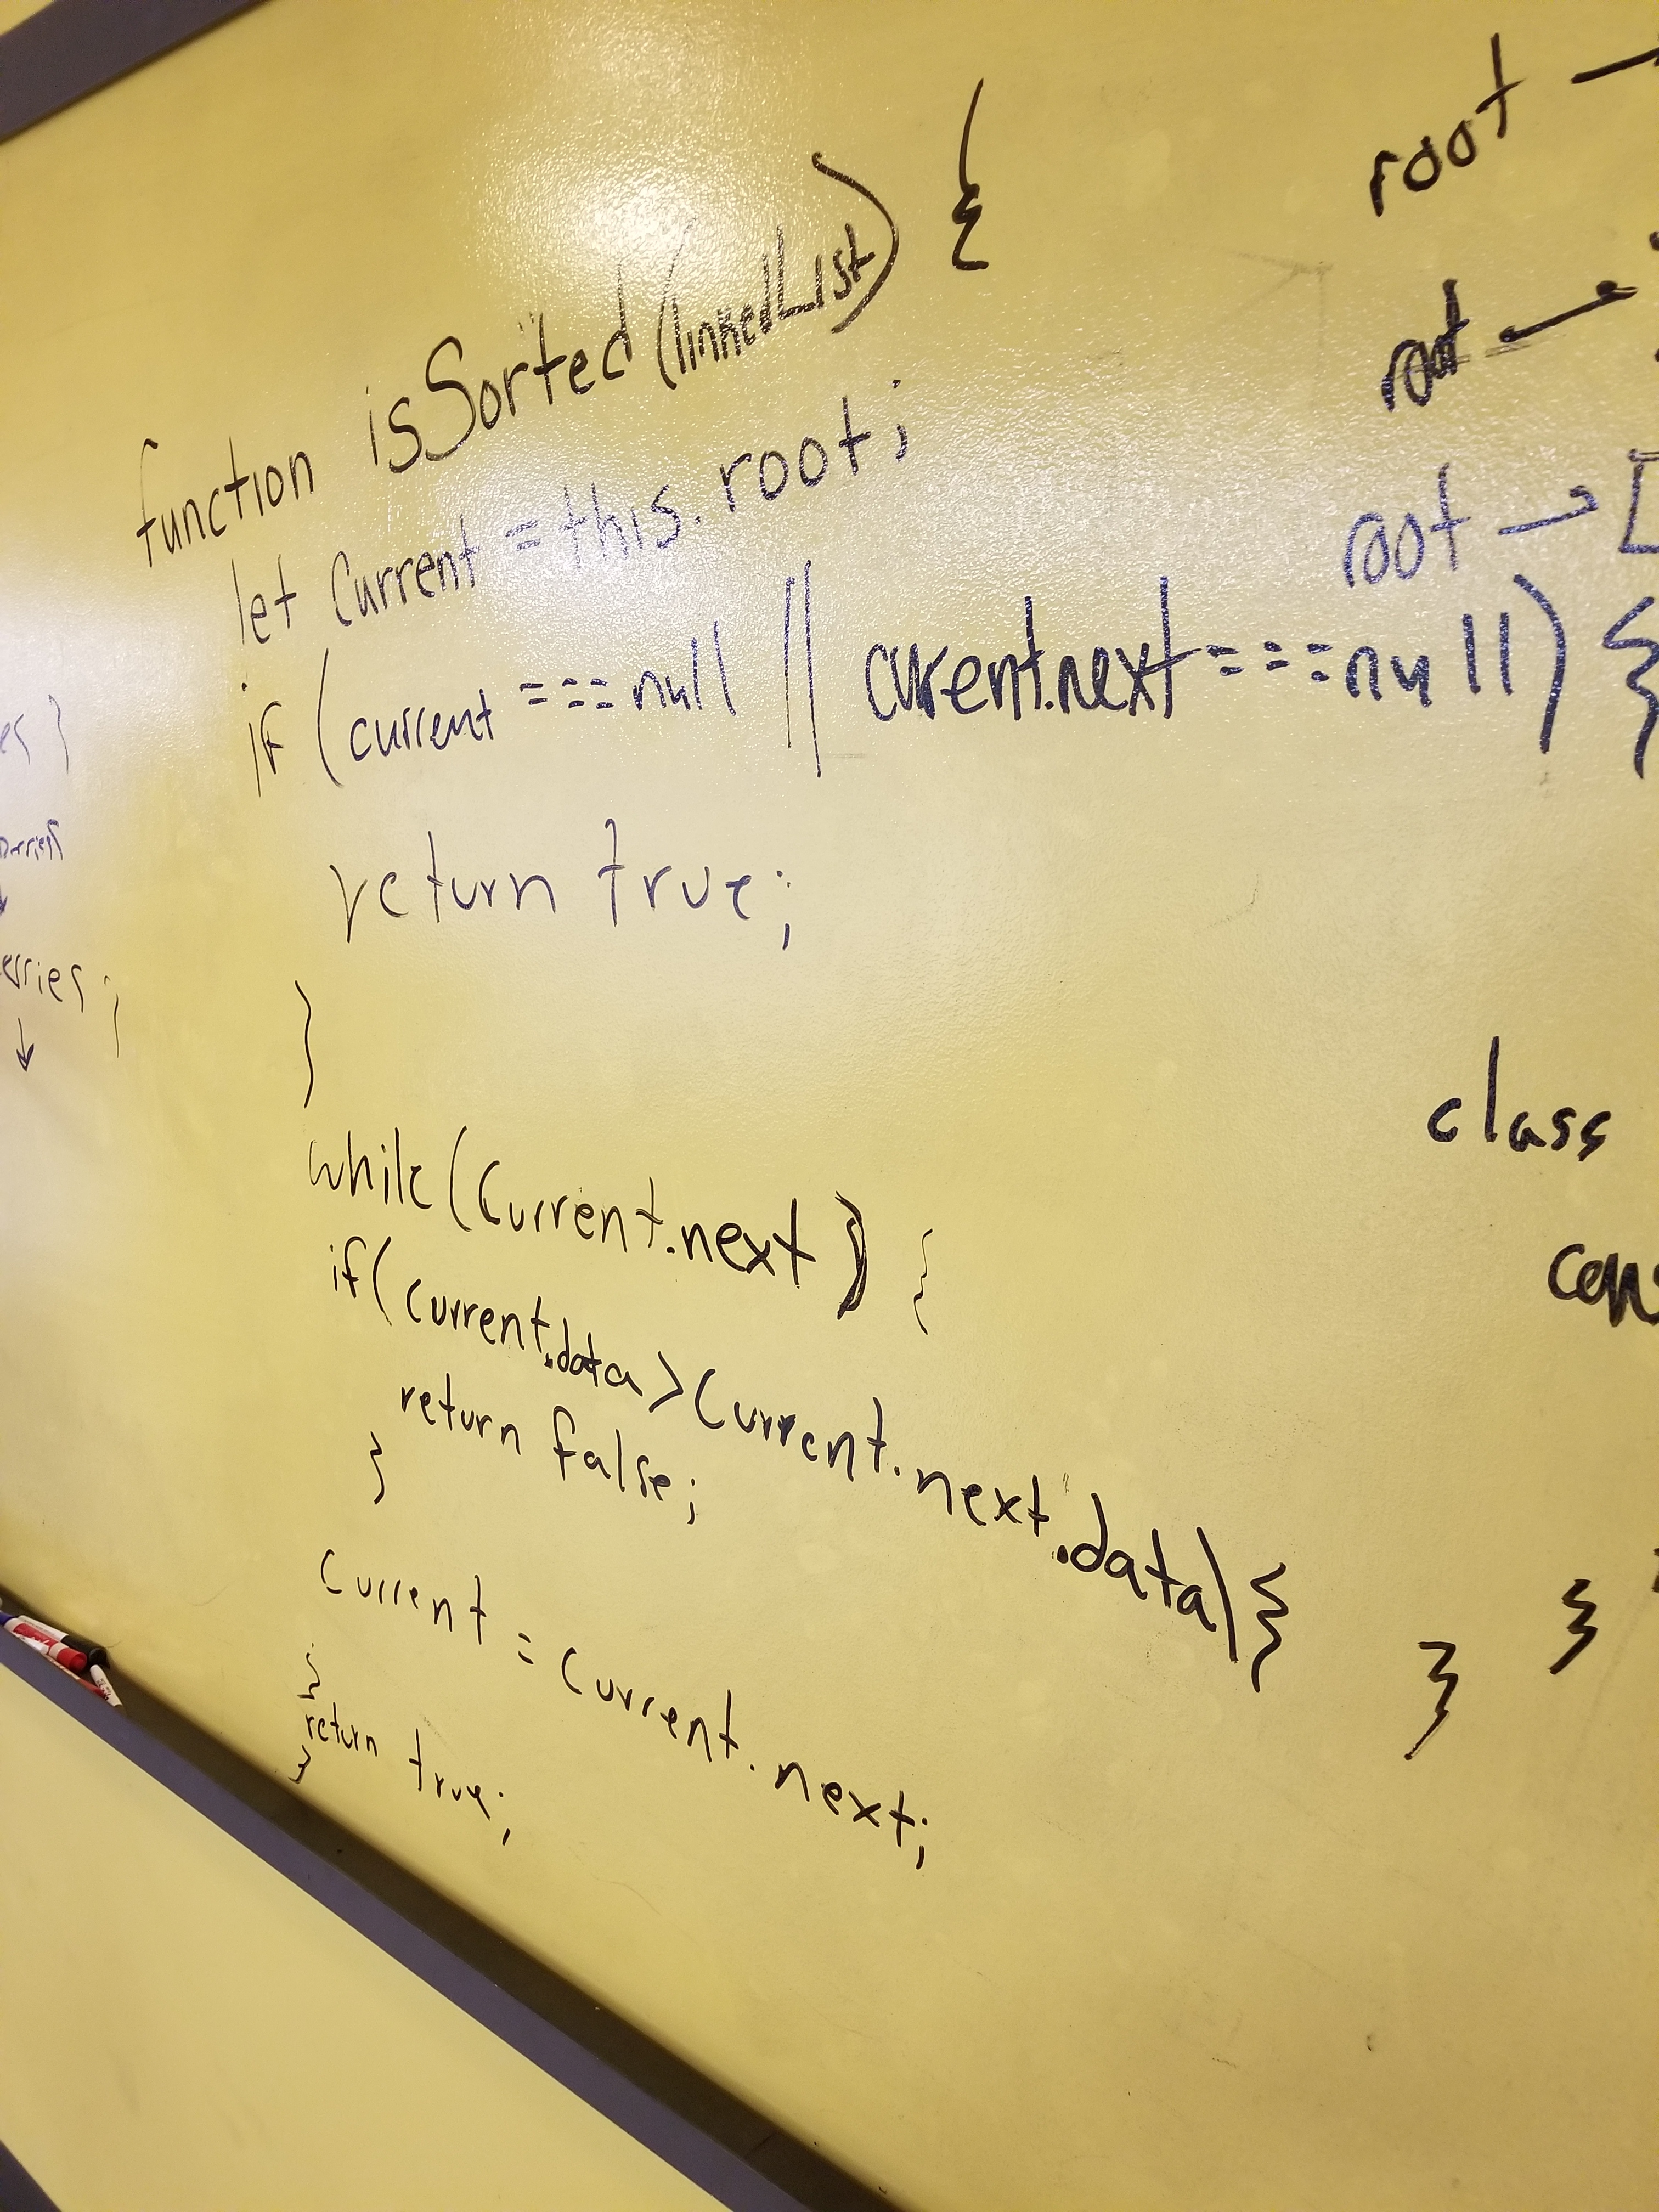 function isSorted(linkedList) {
let current = this.root;
if (current === null || curent.next === null) {
return true;
}
while (current.next) {
if (current.data > current.next.data) {
return false;
}
current = current.next;
}
return true;
}
root →
root →
root → [
class
cons
}
}
es }
erries;
↓